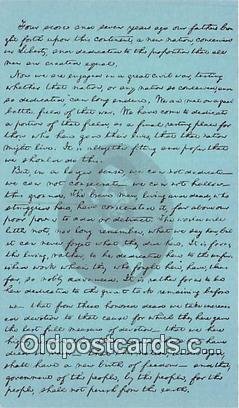 Four score and seven years ago our fathers brou-
ght forth upon this continent, a new nation, conceived
in Liberty, and dedicated to the proposition that all
men are created equal.
Now we are engaged in a great civil war, testing
whether that nation, or any nation so conceived and
so dedicated, can long endure. We are met on a great
battle field of that war. We have come to dedicate
a portion of that field, as a final resting place for
those who here gave their lives, that that nation
might live. It is altogether fitting and proper that
we should do this.
But, in a larger sense, we can not dedicate—
we can not consecrate— we can not hallow—
this ground. The brave men, living and dead, who
struggled here, have consecrated it, far above our
poor power to add or detract. The world will
little note, nor long remember, what we say here, but
it can never forget what they did here. It is for us
the living, rather, to be dedicated here to the unfin-
work which they who fought here, have, thus
far, so nobly advanced. It is rather for us to be
here dedicated to the great task remaining before
that from these honored dead we take increas-
ed devotion to that cause for which they here gave
the last full measure of devotion— that we here
have
Oldpostcards.com
shall have a new birth of freedom—and that,
government of the people, by the people, for the
people, shall not perish from the earth.